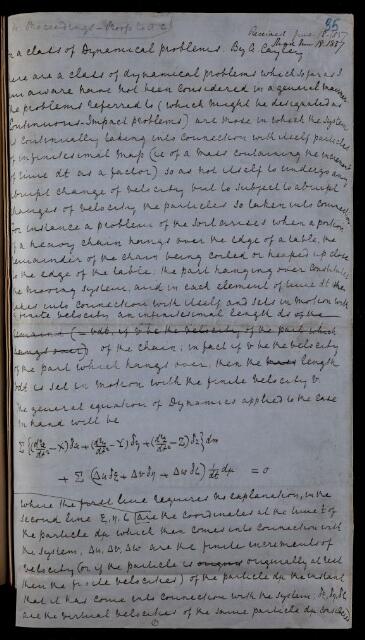 Proceedings
Received June 18. 1857
Read June 18. 1857
35
n a class of Dynamical problems. By A Cayley
ere are a class of dynamical problems which so far as I
am aware have not been considered in a general manner
he problems referred to (which might be designated as
Continuous-Impact problems) are those in which the system
is continually taking into connection with itself particles
of infinitesimal mass (ie of a mass containing the increment
of time dt as a factor) so as not itself to undergo any
abrupt change of velocity but to subject to abrupt
changes of velocity the particles so taken into connection
For instance a problem of the sort arises when a portion
of a heavy chain hangs over the edge of a table, the
remainder of the chain being coiled or heaped up close
to the edge of the table; the part hanging over constitutes
the moving system, and in each element of time dt the
takes into connection with itself and sets in motion with
a finite velocity an infinitesimal length ds of the
(= vdt, if v be the velocity of the part which
hangs over) of the chain; in fact if v be the velocity
of the part which hangs over, then the length
vdt is set in motion with the finite velocity v
The general equation of Dynamics applied to the case
in hand will be
Σ{(d²x/dt² - X)δx + (d²y/dt² - Y)δy + (d²z/dt² - Z)δz} dm
+ Σ (Δu δξ + Δv δη + Δw δζ) 1/dt dμ = 0
where the first line requires no explanation, in the
second line ξ, η, ζ are the coordinates at the time t of
the particle dμ which then comes into connection with
the system, Δu, Δv, Δw are the finite increments of
velocity (or if the particle is originally at rest
then the finite velocities) of the particle dμ the instant
that it has come into connection with the system, δξ, δη, δζ
are the virtual velocities of the same particle dμ considered